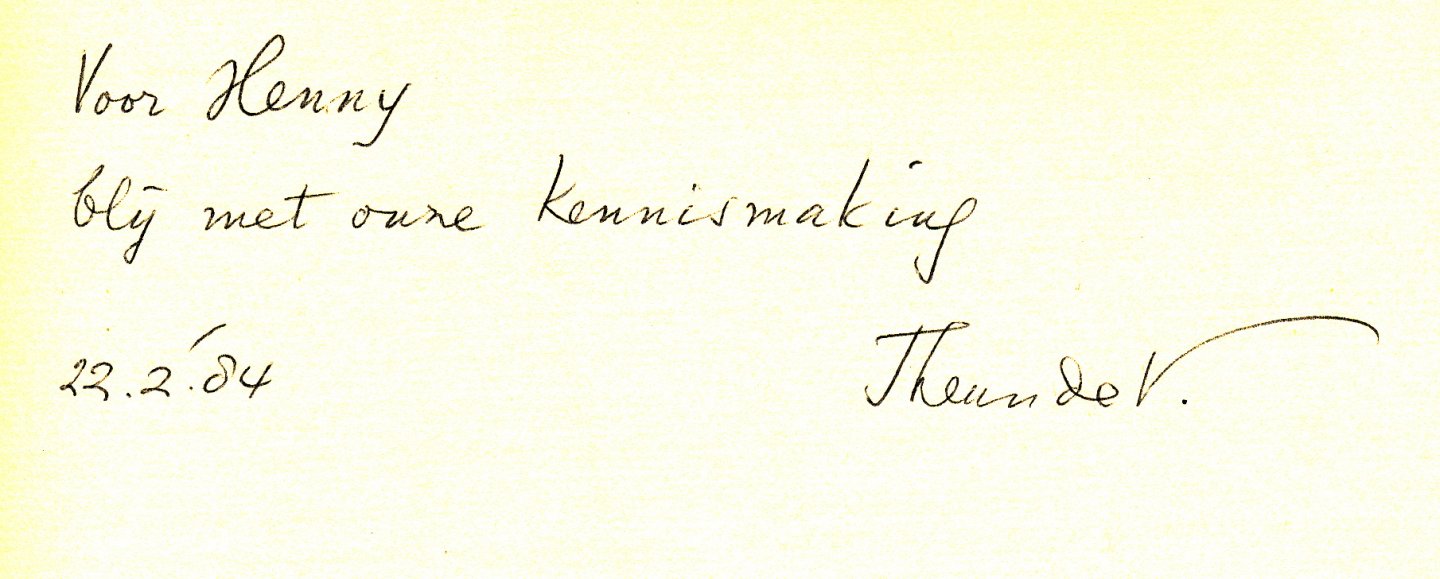 Voor Henny
blij met onze kennismaking
22.2.'84
Theun de V.